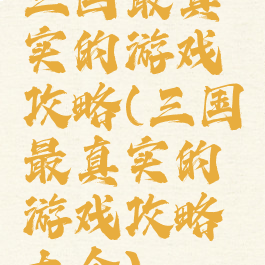 三国最真
实的游戏
攻略(三国
最真实的
游戏攻略
大全)